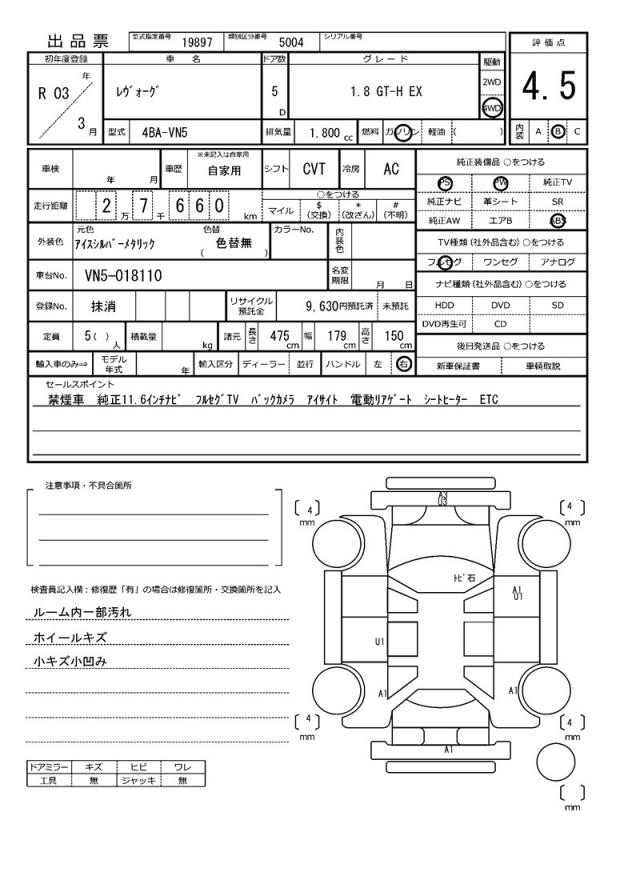 出品票 型式指定番号 19897 類別区分番号 5004 シリアル番号
評価点
4.5
内装 A B C
初年度登録 車名 ドア数 グレード 駆動
R 03 年 3 月 ﾚｳﾞｫｰｸﾞ 5 D 1.8 GT-H EX 2WD 4WD
型式 4BA-VN5 排気量 1.800 cc 燃料 ガソリン 軽油 ( )
車検 年 月 車歴 ※未記入は自家用 自家用 シフト CVT 冷房 AC
走行距離 2 万 7 千 6 6 0 km ○をつける
マイル $ (交換) * (改ざん) # (不明)
外装色 元色 ｱｲｽｼﾙﾊﾞｰﾒﾀﾘｯｸ 色替 ( 色替無 ) カラーNo. 内装色
車台No. VN5-018110 名変期限 月 日
登録No. 抹消 リサイクル預託金 9,630円預託済 未預託
定員 5( ) 人 積載量 kg 諸元 長さ 475 cm 幅 179 cm 高さ 150 cm
輸入車のみ⇒ モデル年式 年 輸入区分 ディーラー 並行 ハンドル 左 右
純正装備品 ○をつける
PS PW 純正TV
純正ナビ 革シート SR
純正AW エアB ABS
TV種類 (社外品含む) ○をつける
フルセグ ワンセグ アナログ
ナビ種類 (社外品含む) ○をつける
HDD DVD SD
DVD再生可 CD
後日発送品 ○をつける
新車保証書 車輌取説
セールスポイント
禁煙車 純正11.6ｲﾝﾁﾅﾋﾞ ﾌﾙｾｸﾞTV ﾊﾞｯｸｶﾒﾗ ｱｲｻｲﾄ 電動ﾘｱｹﾞｰﾄ ｼｰﾄﾋｰﾀｰ ETC
注意事項・不具合箇所
検査員記入欄：修復歴「有」の場合は修復箇所・交換箇所を記入
ルーム内一部汚れ
ホイールキズ
小キズ小凹み
ドアミラー キズ ヒビ ワレ
工具 無 ジャッキ 無
A3
U3
[ 4 ] mm
[ 4 ] mm
ﾄﾋﾞ石
A1
U1
U1
A1
A1
[ 4 ] mm
[ 4 ] mm
A1
[ ] mm